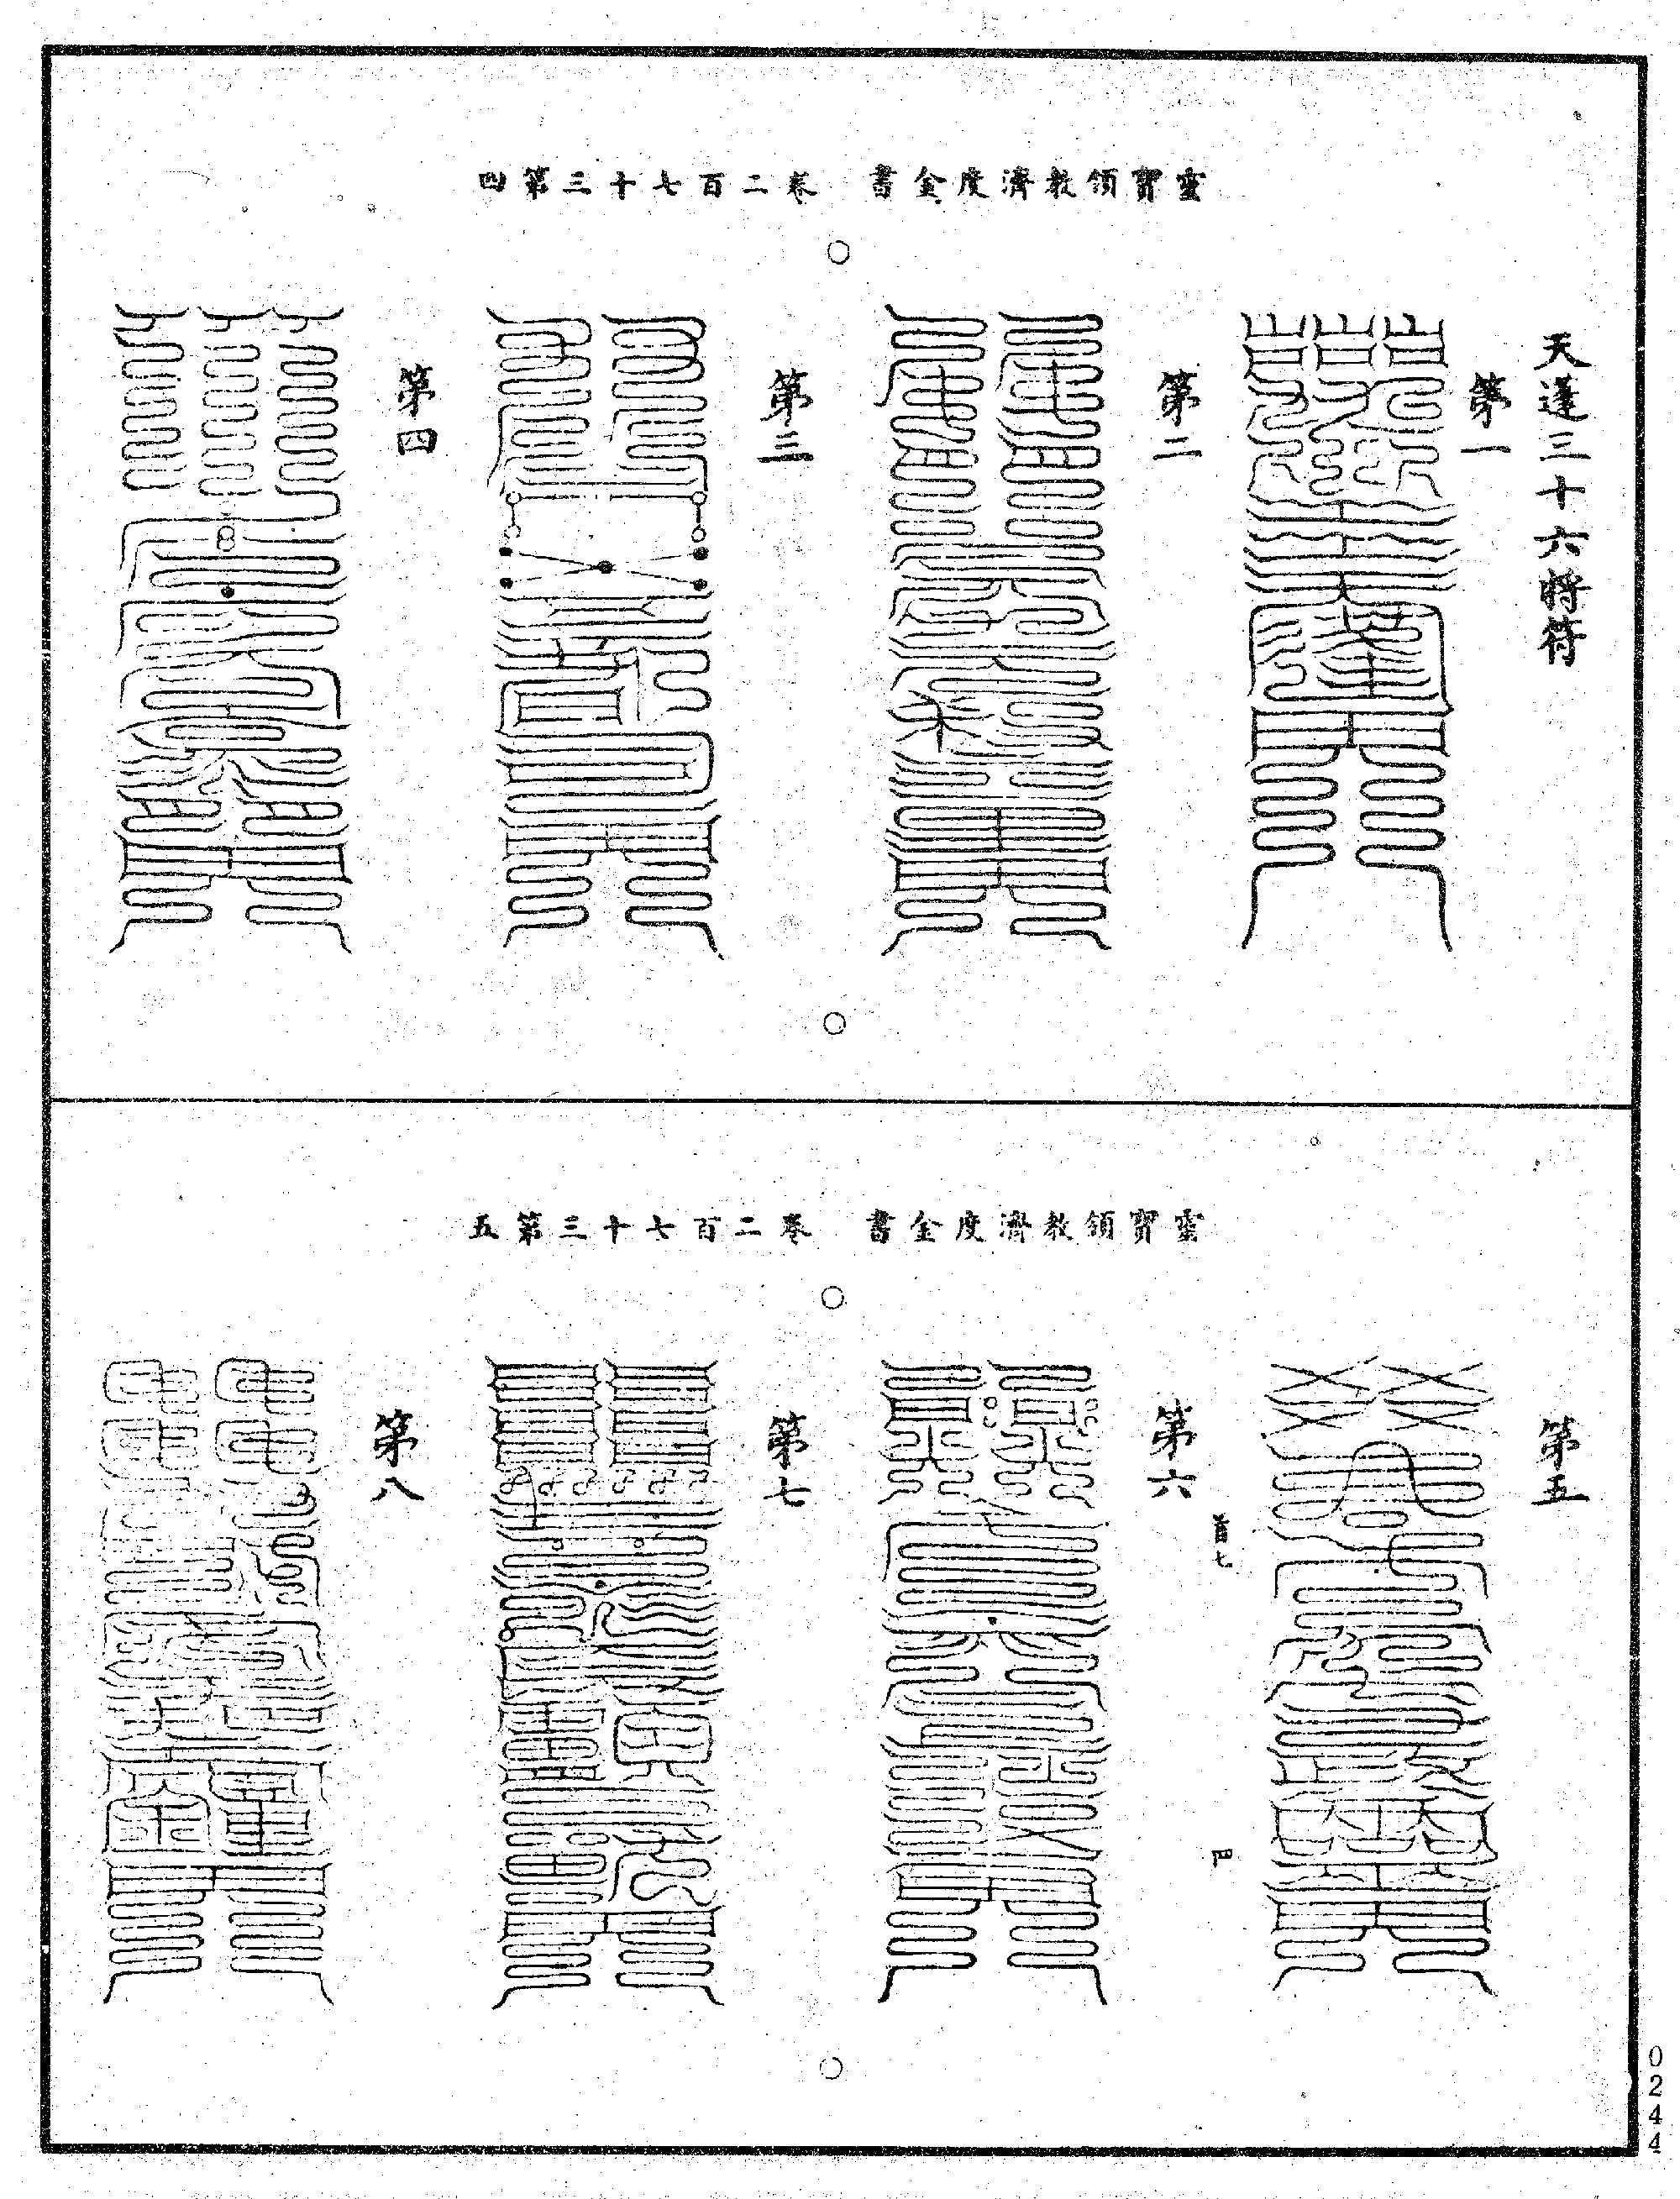 靈寶領教濟度金書 卷二百七十三第四
天蓬三十六將符
第一
第二
第三
第四
靈寶領教濟度金書 卷二百七十三第五
第五
首七
第六
第七
第八
0244